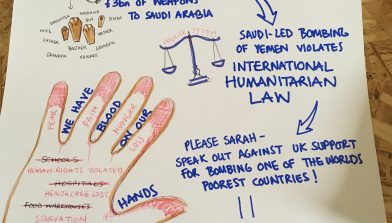 £3bn OF WEAPONS
TO SAUDI ARABIA
DAUGHTER
HUSBAND
SON
SISTER
WIFE
FATHER
MOTHER
BROTHER
FRIEND
GRANDMA
GRANDAD
FRIENDS
SAUDI-LED BOMBING
OF YEMEN VIOLATES
INTERNATIONAL
HUMANITARIAN
LAW
WE HAVE
BLOOD
ON OUR
HANDS
FEAR
PAIN
HUNGER
LOSS
SCHOOLS
HUMAN RIGHTS VIOLATED
HOSPITALS
HEALTHCARE LOST
FOOD WAREHOUSES
STARVATION
PLEASE SARAH -
SPEAK OUT AGAINST UK SUPPORT
FOR BOMBING ONE OF THE WORLDS
POOREST COUNTRIES!